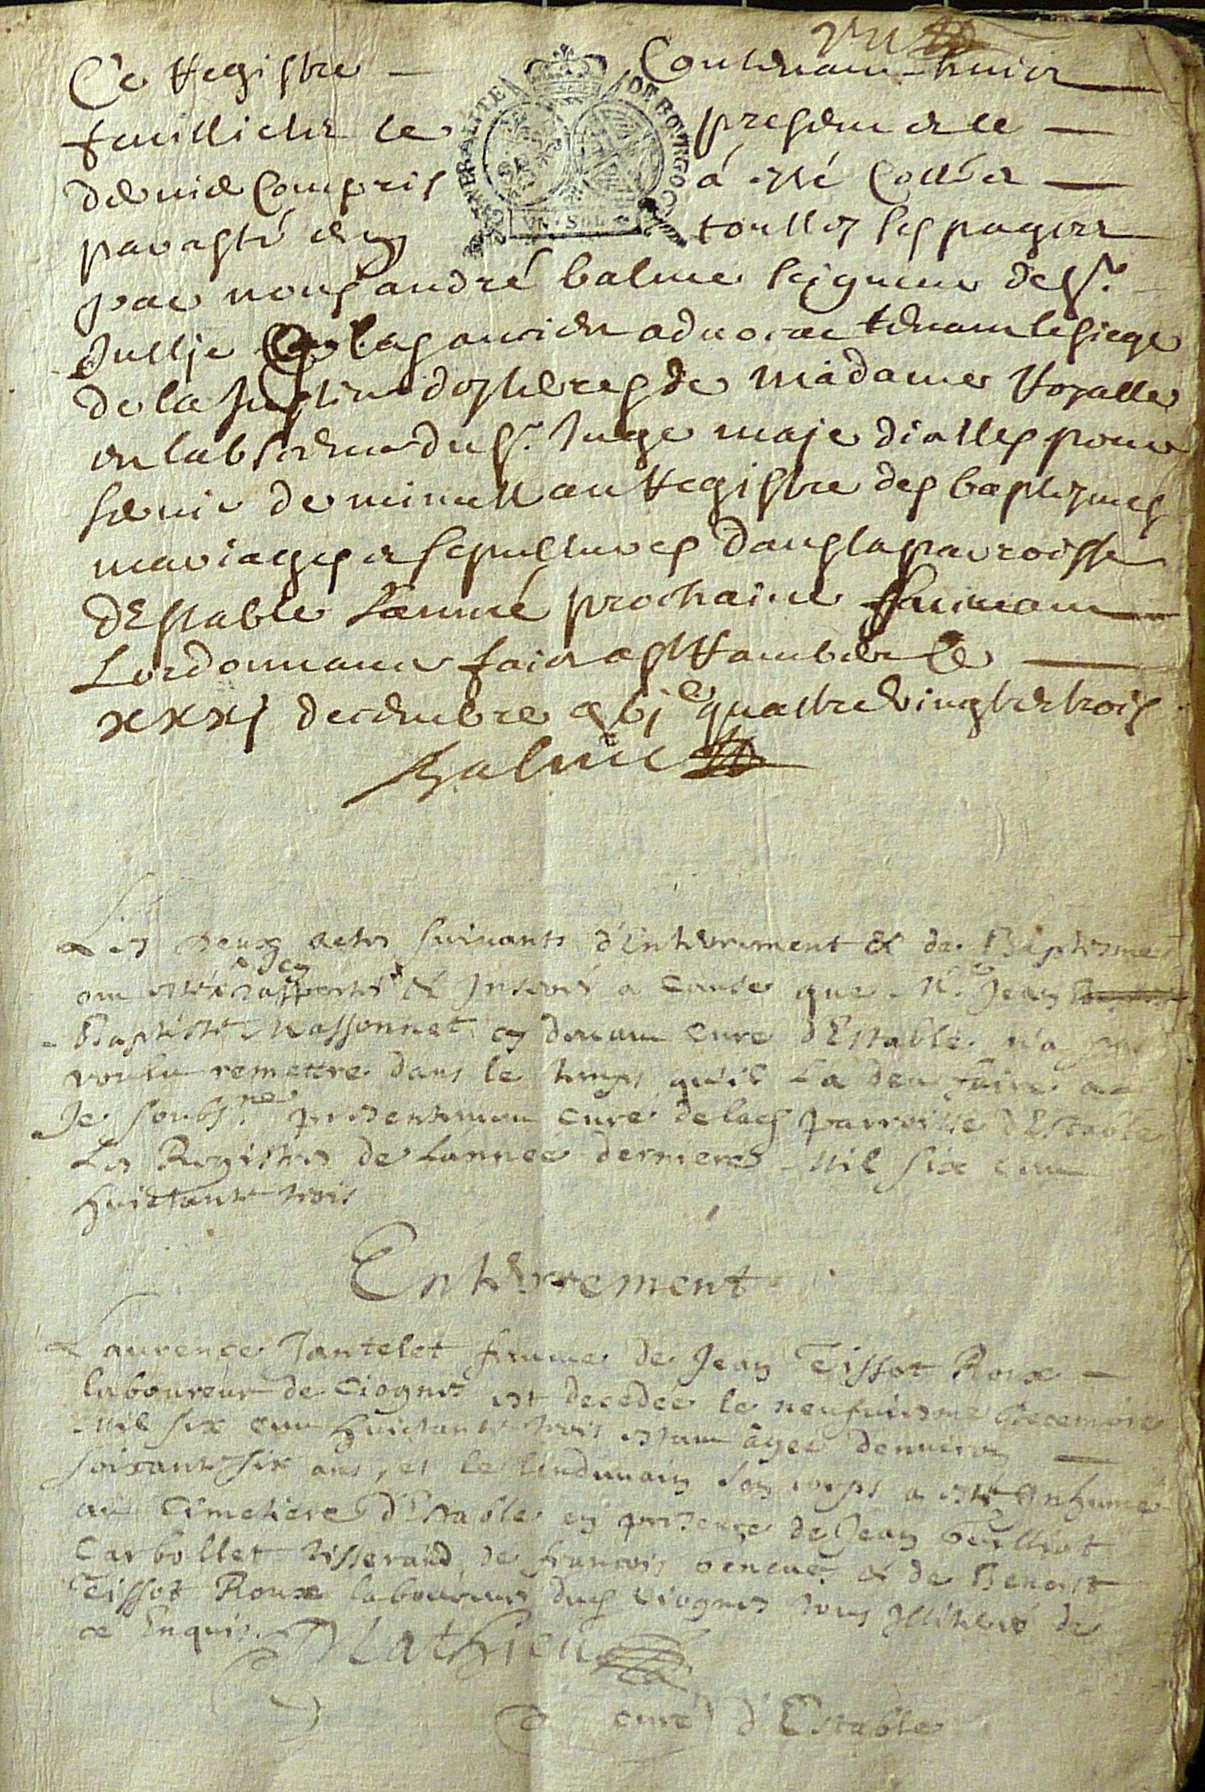 Ce Registre Contenant huict
feuillietz le present et le
dernie Compris à esté Cotté et
paraphé en touttes ses pages
par nous andré balme seigneur de St
Jullie ancien advocat tenant le siege
de la Justice des terres de madame Royalle
en labsence du Sr Juge maje dicelles pour
servir de minutte au Registre des baptesmes
mariages et sepultures dans la parroisse
dEstable Lanné prochaine suivant
Lordonnance faict a St Rambert Ce
xxxj decembre quatre vingtz trois
Balme
GENERALITE DE BOURGOGNE
SOLS
Les deux actes suivants d'Enterrement & de Baptesme
ont esté icy rapportés & Inscrits a Cause que Mre Jean
Baptiste Massonnet cy devant Curé d'Estable n'a pas
voulu remettre dans le temps qu'il La deu faire a
Je soubsne presentement curé de lad parroisse d'Estable
Les Registres de Lannée derniere Mil six cent
huictante trois
Enterrement
Laurence Jantelet femme de Jean Teissot Roux
laboureur de Ciognes est decedée le neufuiesme decembre
Mil six cent huictante trois estant âgée denviron
soixante six ans, et le lendemain son corps a esté Inhumé
au Cimetiere d'Estable en presence de Jean
Carbollet tisserand de françois & de Benoist
Teissot Roux laboureurs dud Ciognes tous Illiterés de
ce Enquis. Mathieu
curé d'Estable